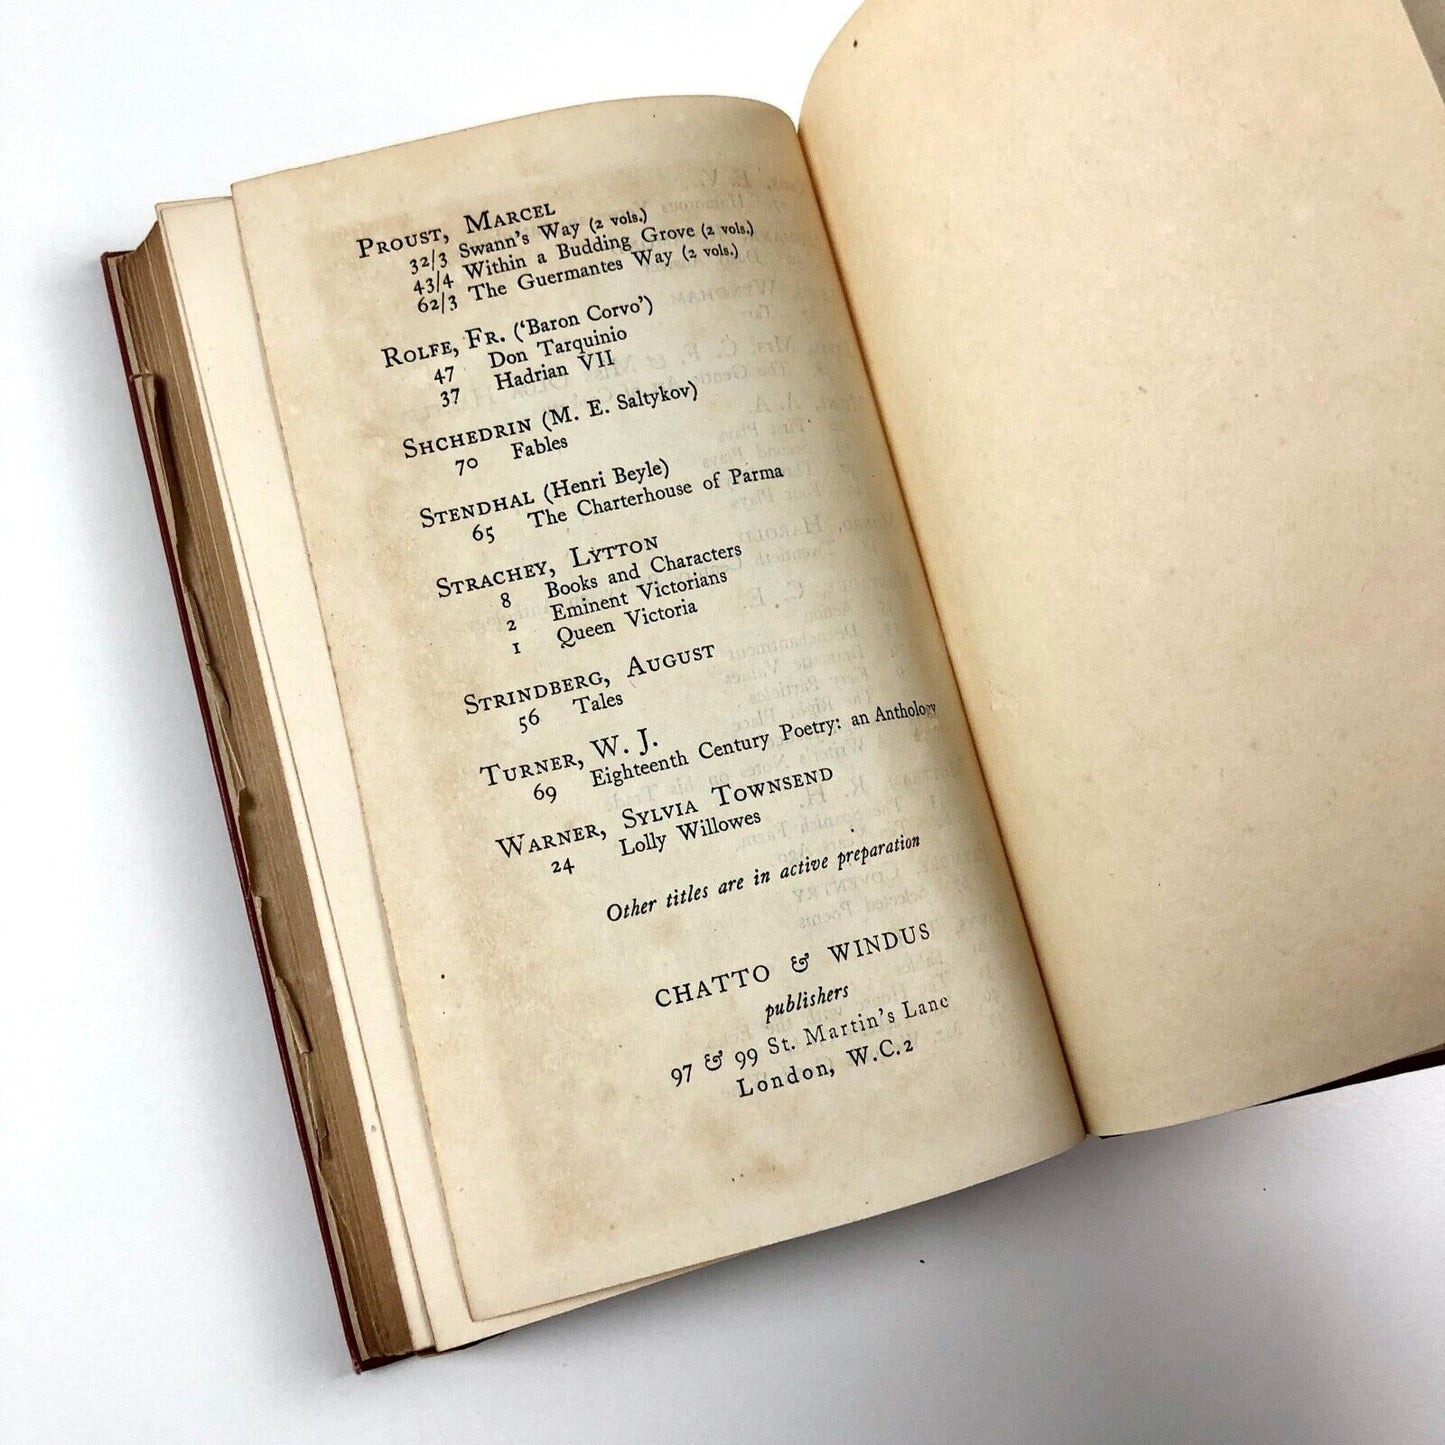 PROUST, MARCEL
32/3 Swann's Way (2 vols.)
43/4 Within a Budding Grove (2 vols.)
62/3 The Guermantes Way (2 vols.)
ROLFE, FR. ('Baron Corvo')
47 Don Tarquinio
37 Hadrian VII
SHCHEDRIN (M. E. Saltykov)
70 Fables
STENDHAL (Henri Beyle)
65 The Charterhouse of Parma
STRACHEY, LYTTON
8 Books and Characters
2 Eminent Victorians
1 Queen Victoria
STRINDBERG, AUGUST
56 Tales
TURNER, W. J.
69 Eighteenth Century Poetry: an Anthology
WARNER, SYLVIA TOWNSEND
24 Lolly Willowes
Other titles are in active preparation
CHATTO & WINDUS
publishers
97 & 99 St. Martin's Lane
London, W.C.2